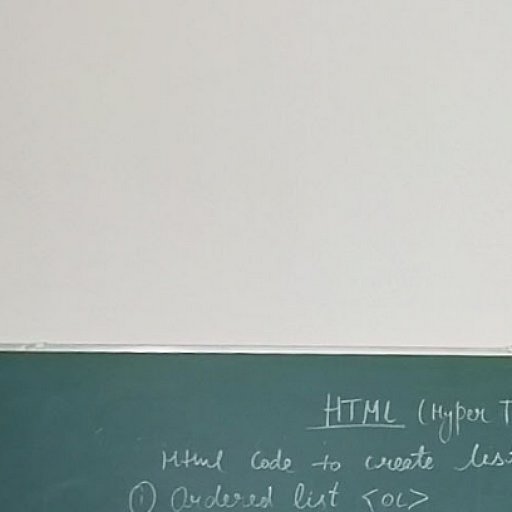 HTML (Hyper T
Html Code to create
① Ordered list <OL>